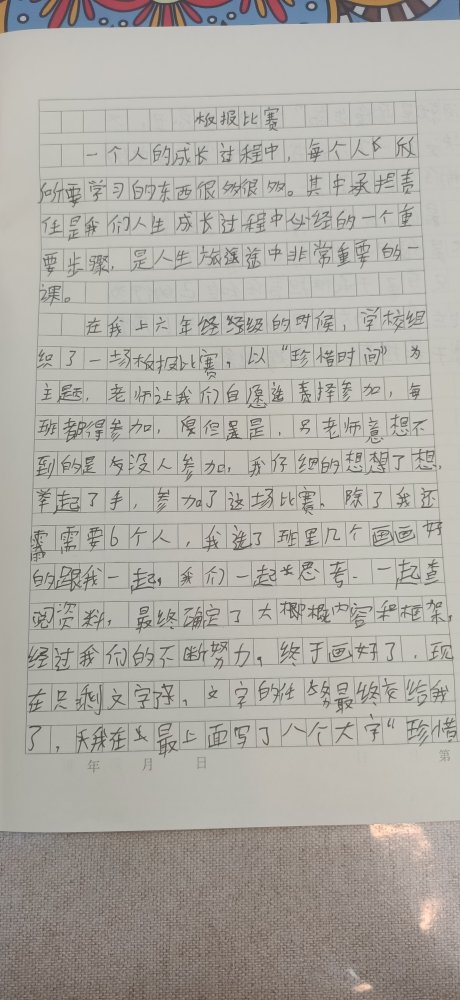 板报比赛
一个人的成长过程中，每个人长
所要学习的东西很多很多。其中承担责
任是我们人生成长过程中必经的一个重
要步骤，是人生旅途中非常重要的一
课。
在我上六年级的时候，学校组
织了一场板报比赛，以“珍惜时间”为
主题，老师让我们自愿选择参加，每
班都得参加，但是，老师意想不
到的是没人参加，我仔细的想了想，
举起了手，参加了这场比赛。除了我还
需要6个人，我选了班里几个画画好
的跟我一起，我们一起思考，一起查
阅资料，最终确定了大概内容和框架，
经过我们的不断努力，终于画好了，现
在只剩文字部，文字的任务最终交给我
了，我在最上面写了八个大字“珍惜
年 月 日
第